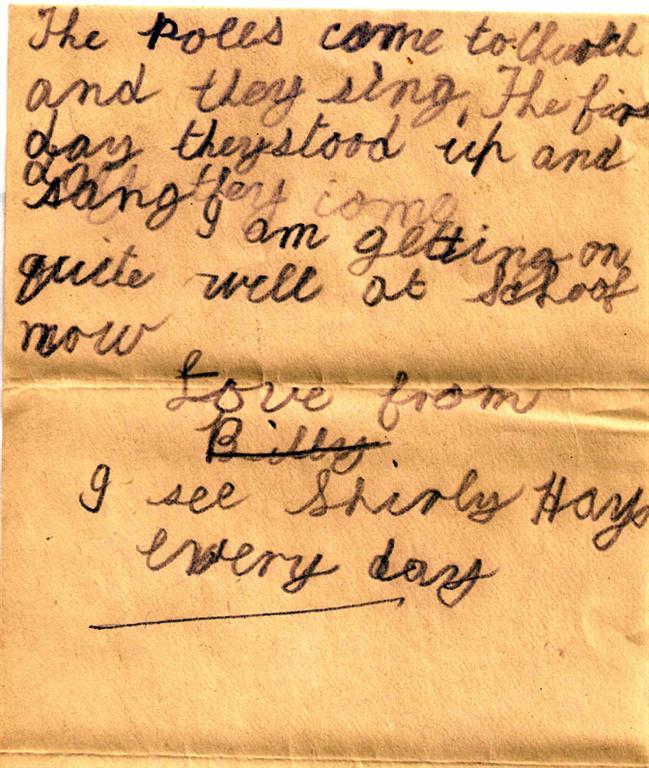 The Poles come to Church
and they sing, The firs
day they stood up and
sang they come
I am getting on
quite well at School
now
Love from
Billy
I see Shirly Hays
every day